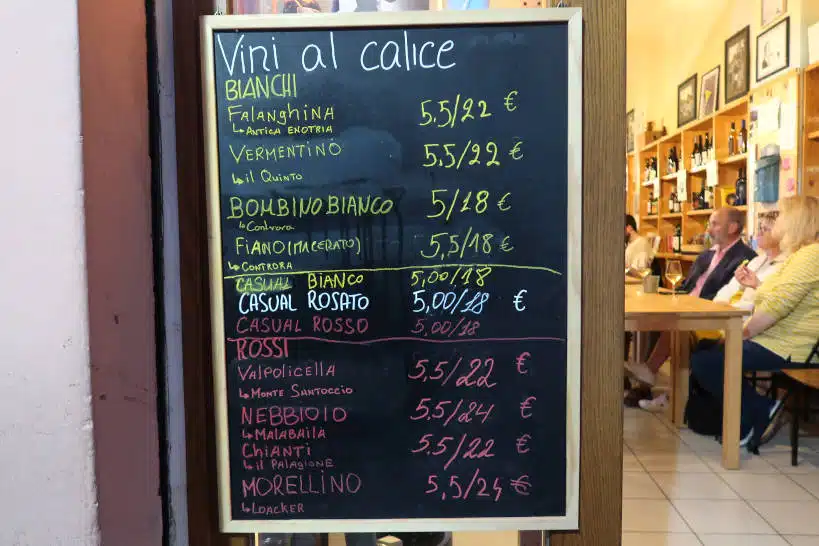 Vini al calice
BIANCHI
FALANGHINA 5,5/22 €
↳ ANTICA ENOTRIA
VERMENTINO 5,5/22 €
↳ il QUINTO
BOMBINO BIANCO 5/18 €
↳ Controra
FIANO (MACERATO) 5,5/18 €
↳ CONTRORA
CASUAL BIANCO 5,00/18
CASUAL ROSATO 5,00/18 €
CASUAL ROSSO 5,00/18
ROSSI
VALPOLICELLA 5,5/22 €
↳ MONTE SANTOCCIO
NEBBIOLO 5.5/24 €
↳ MALABAILA
CHIANTI 5.5/22 €
↳ il PALAGIONE
MORELLINO 5,5/24 €
↳ LOACKER